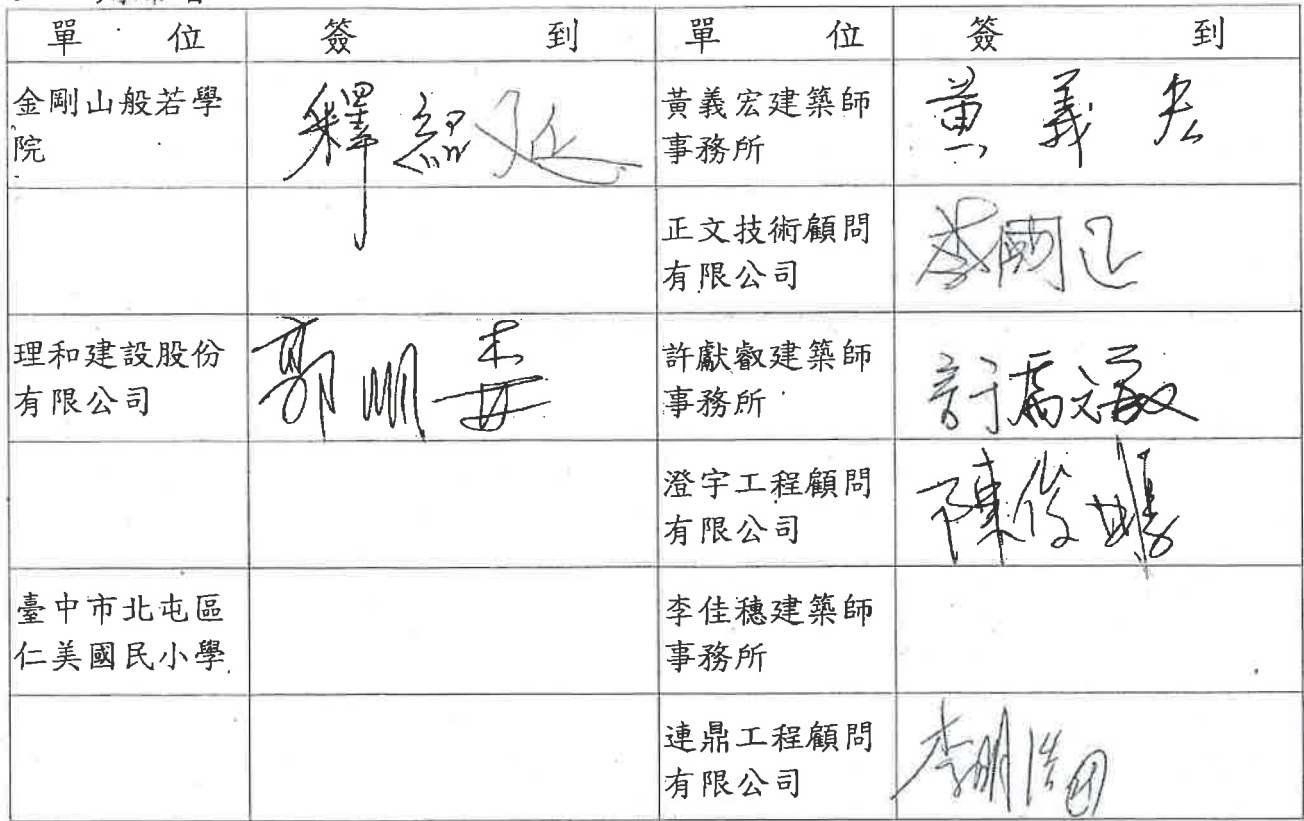 單 位 簽 到 單 位 簽 到
金剛山般若學
院
釋紹延
黃義宏建築師
事務所
黃義宏
正文技術顧問
有限公司
李國
理和建設股份
有限公司
郭
許獻叡建築師
事務所
許獻叡
澄宇工程顧問
有限公司
陳俊
臺中市北屯區
仁美國民小學
李佳穗建築師
事務所
連鼎工程顧問
有限公司
李明浩